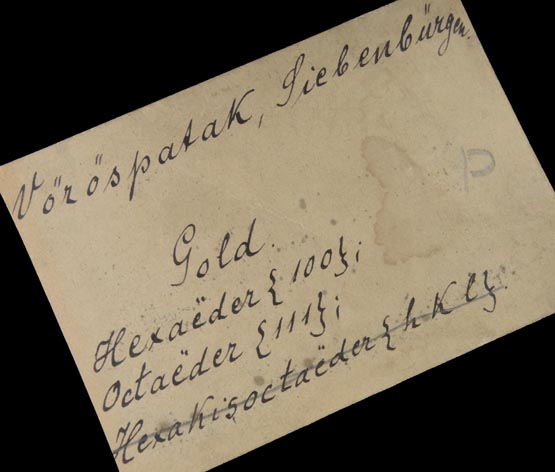 Vöröspatak, Siebenbürgen.
P
Gold.
Hexaëder {100};
Octaëder {111};
Hexakisoctaëder {h K l}